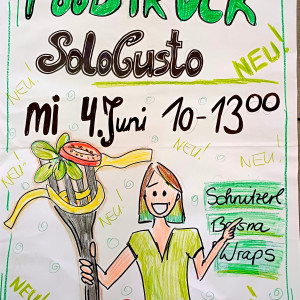 FOODTRUCK
SoloGusto
NEU!
NEU!
mi 4. Juni 10-13⁰⁰
NEU!
NEU!
NEU!
NEU!
NEU!
Schnitzerl
Bosna
Wraps